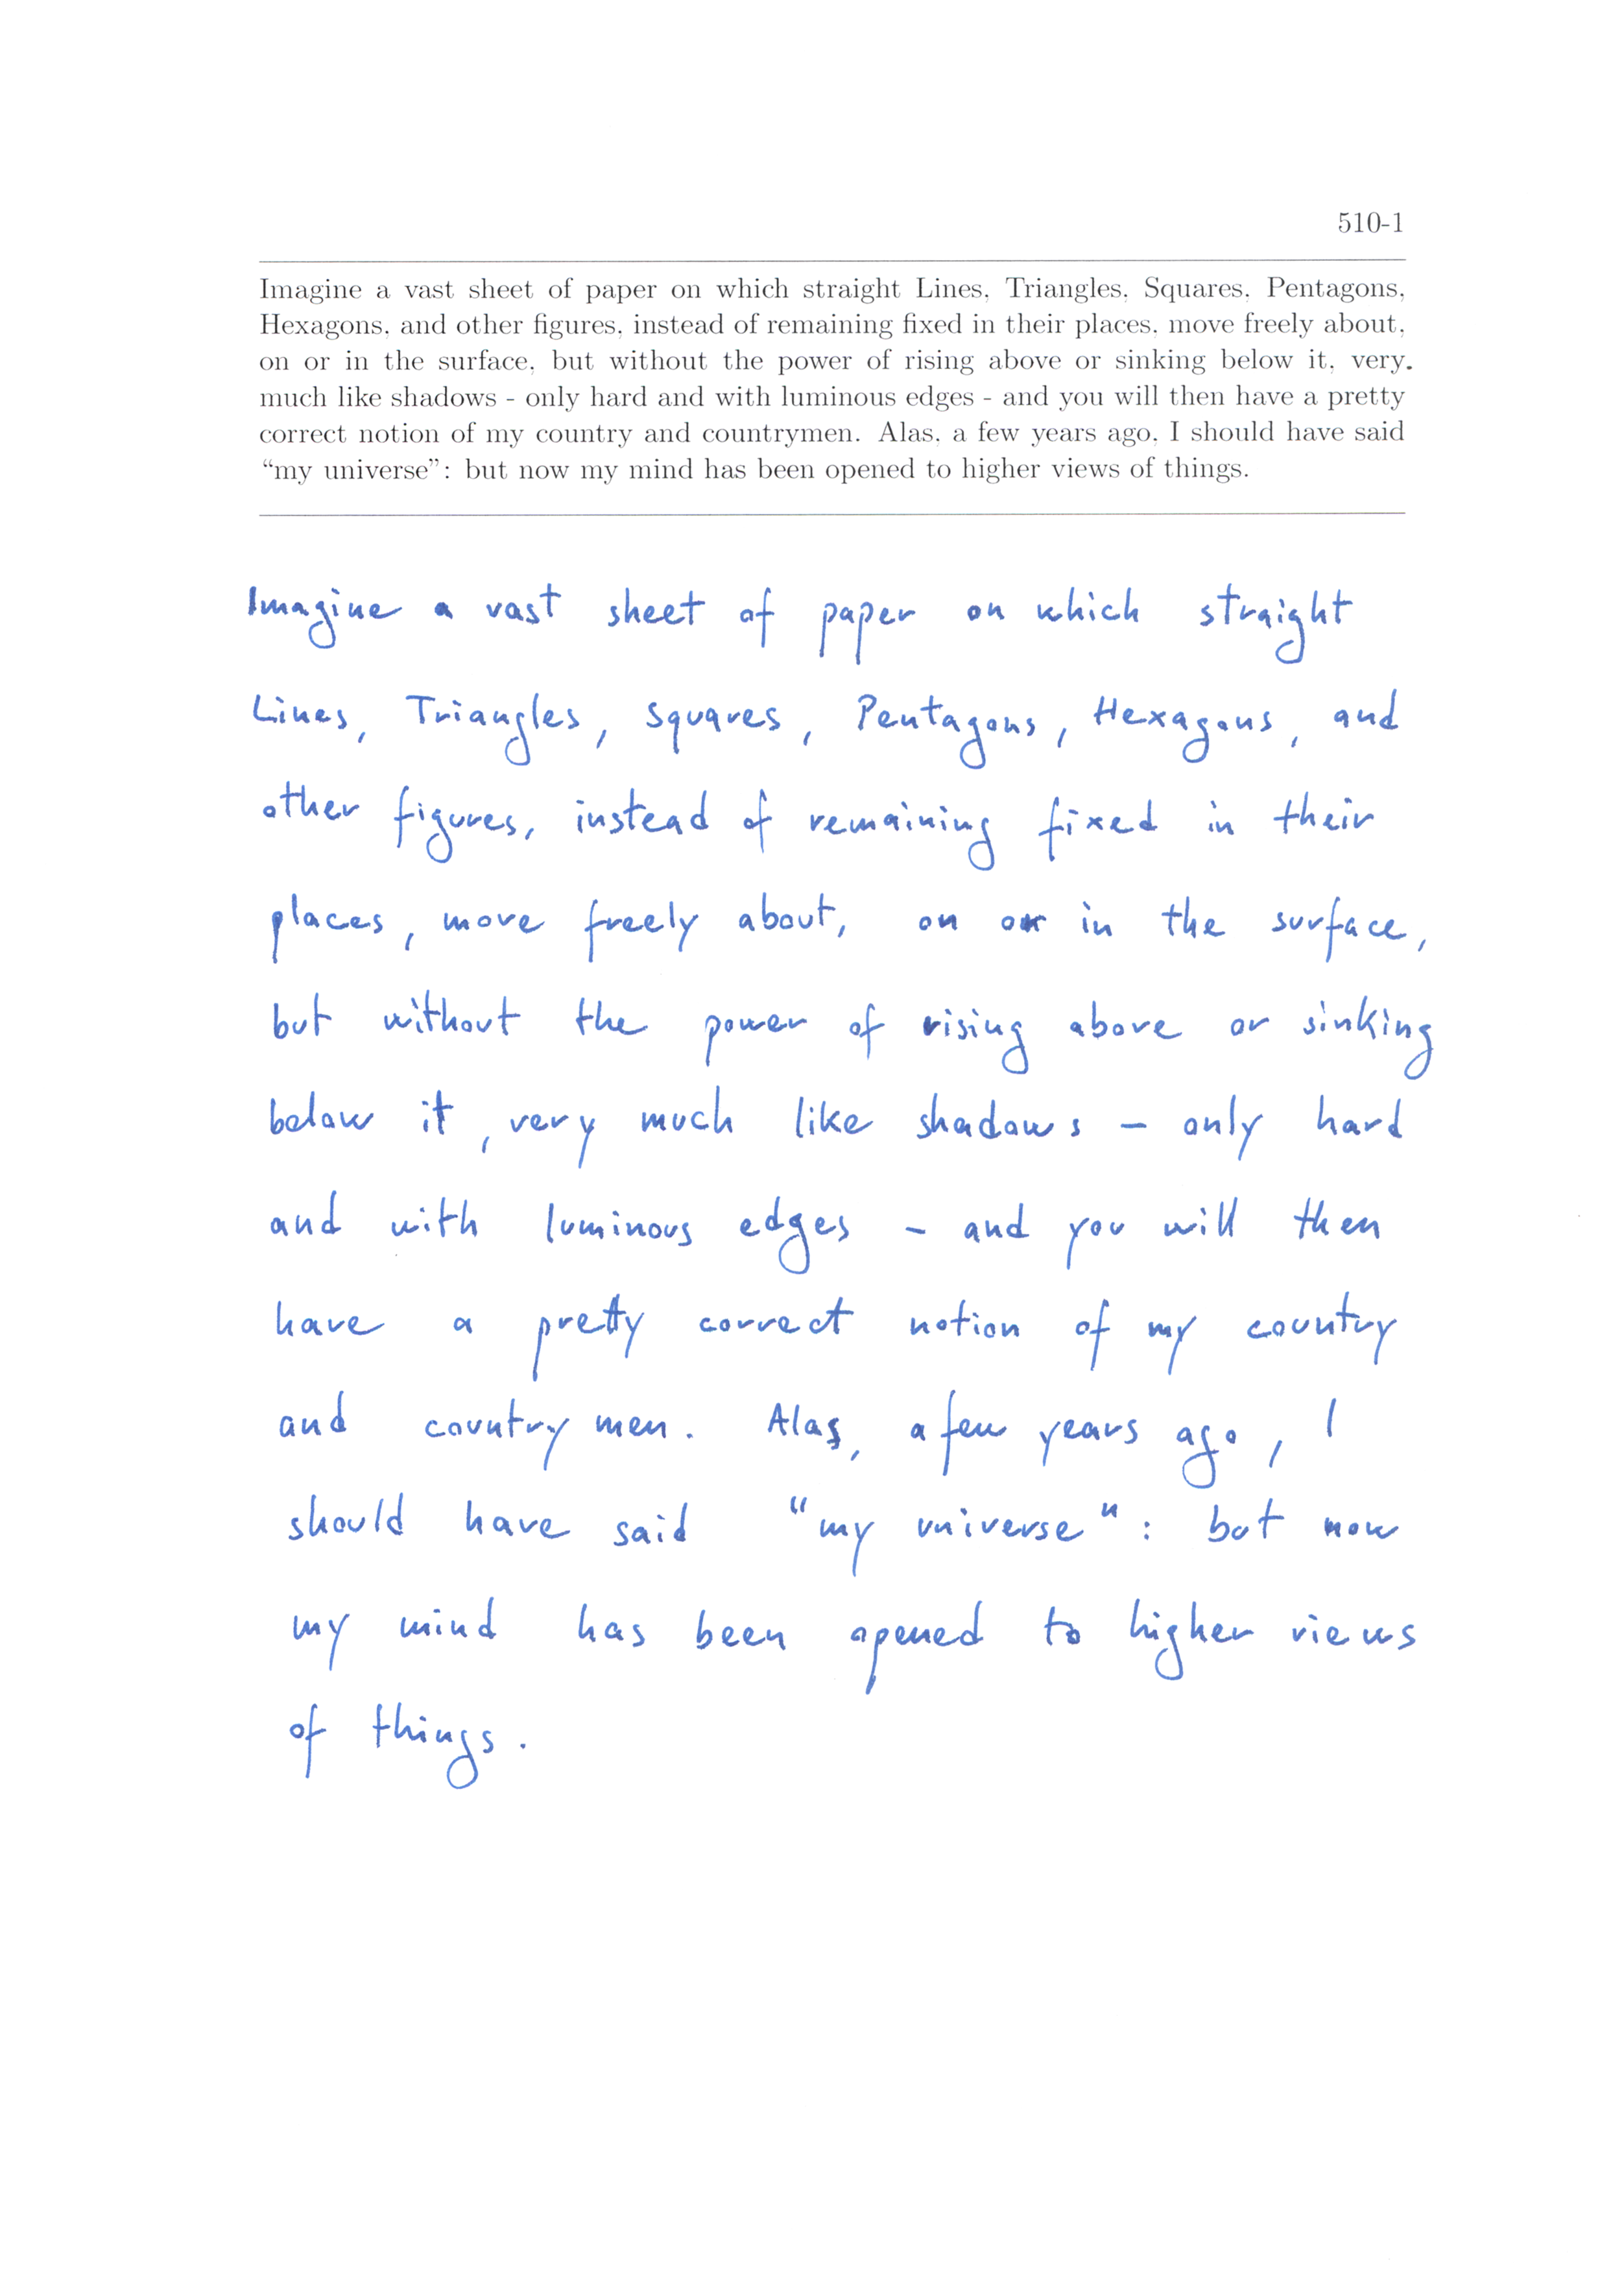 510-1
Imagine a vast sheet of paper on which straight Lines, Triangles, Squares, Pentagons,
Hexagons, and other figures, instead of remaining fixed in their places, move freely about,
on or in the surface, but without the power of rising above or sinking below it, very
much like shadows - only hard and with luminous edges - and you will then have a pretty
correct notion of my country and countrymen. Alas, a few years ago, I should have said
“my universe”: but now my mind has been opened to higher views of things.
Imagine a vast sheet of paper on which straight
Lines, Triangles, Squares, Pentagons, Hexagons, and
other figures, instead of remaining fixed in their
places, move freely about, on or in the surface,
but without the power of rising above or sinking
below it, very much like shadows – only hard
and with luminous edges – and you will then
have a pretty correct notion of my country
and country men. Alas, a few years ago, I
should have said “my universe": but now
my mind has been opened to higher views
of things.